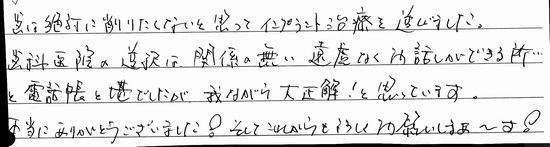 歯は絶対に削りたくないと思ってインプラント治療を選びました。
歯科医院の選択は関係の無い遠慮なくお話しができる所…
と電話帳と堪でしたが、我ながら大正解！と思っています。
本当にありがとうございました！そしてこれからもよろしくお願いしまぁ〜す！